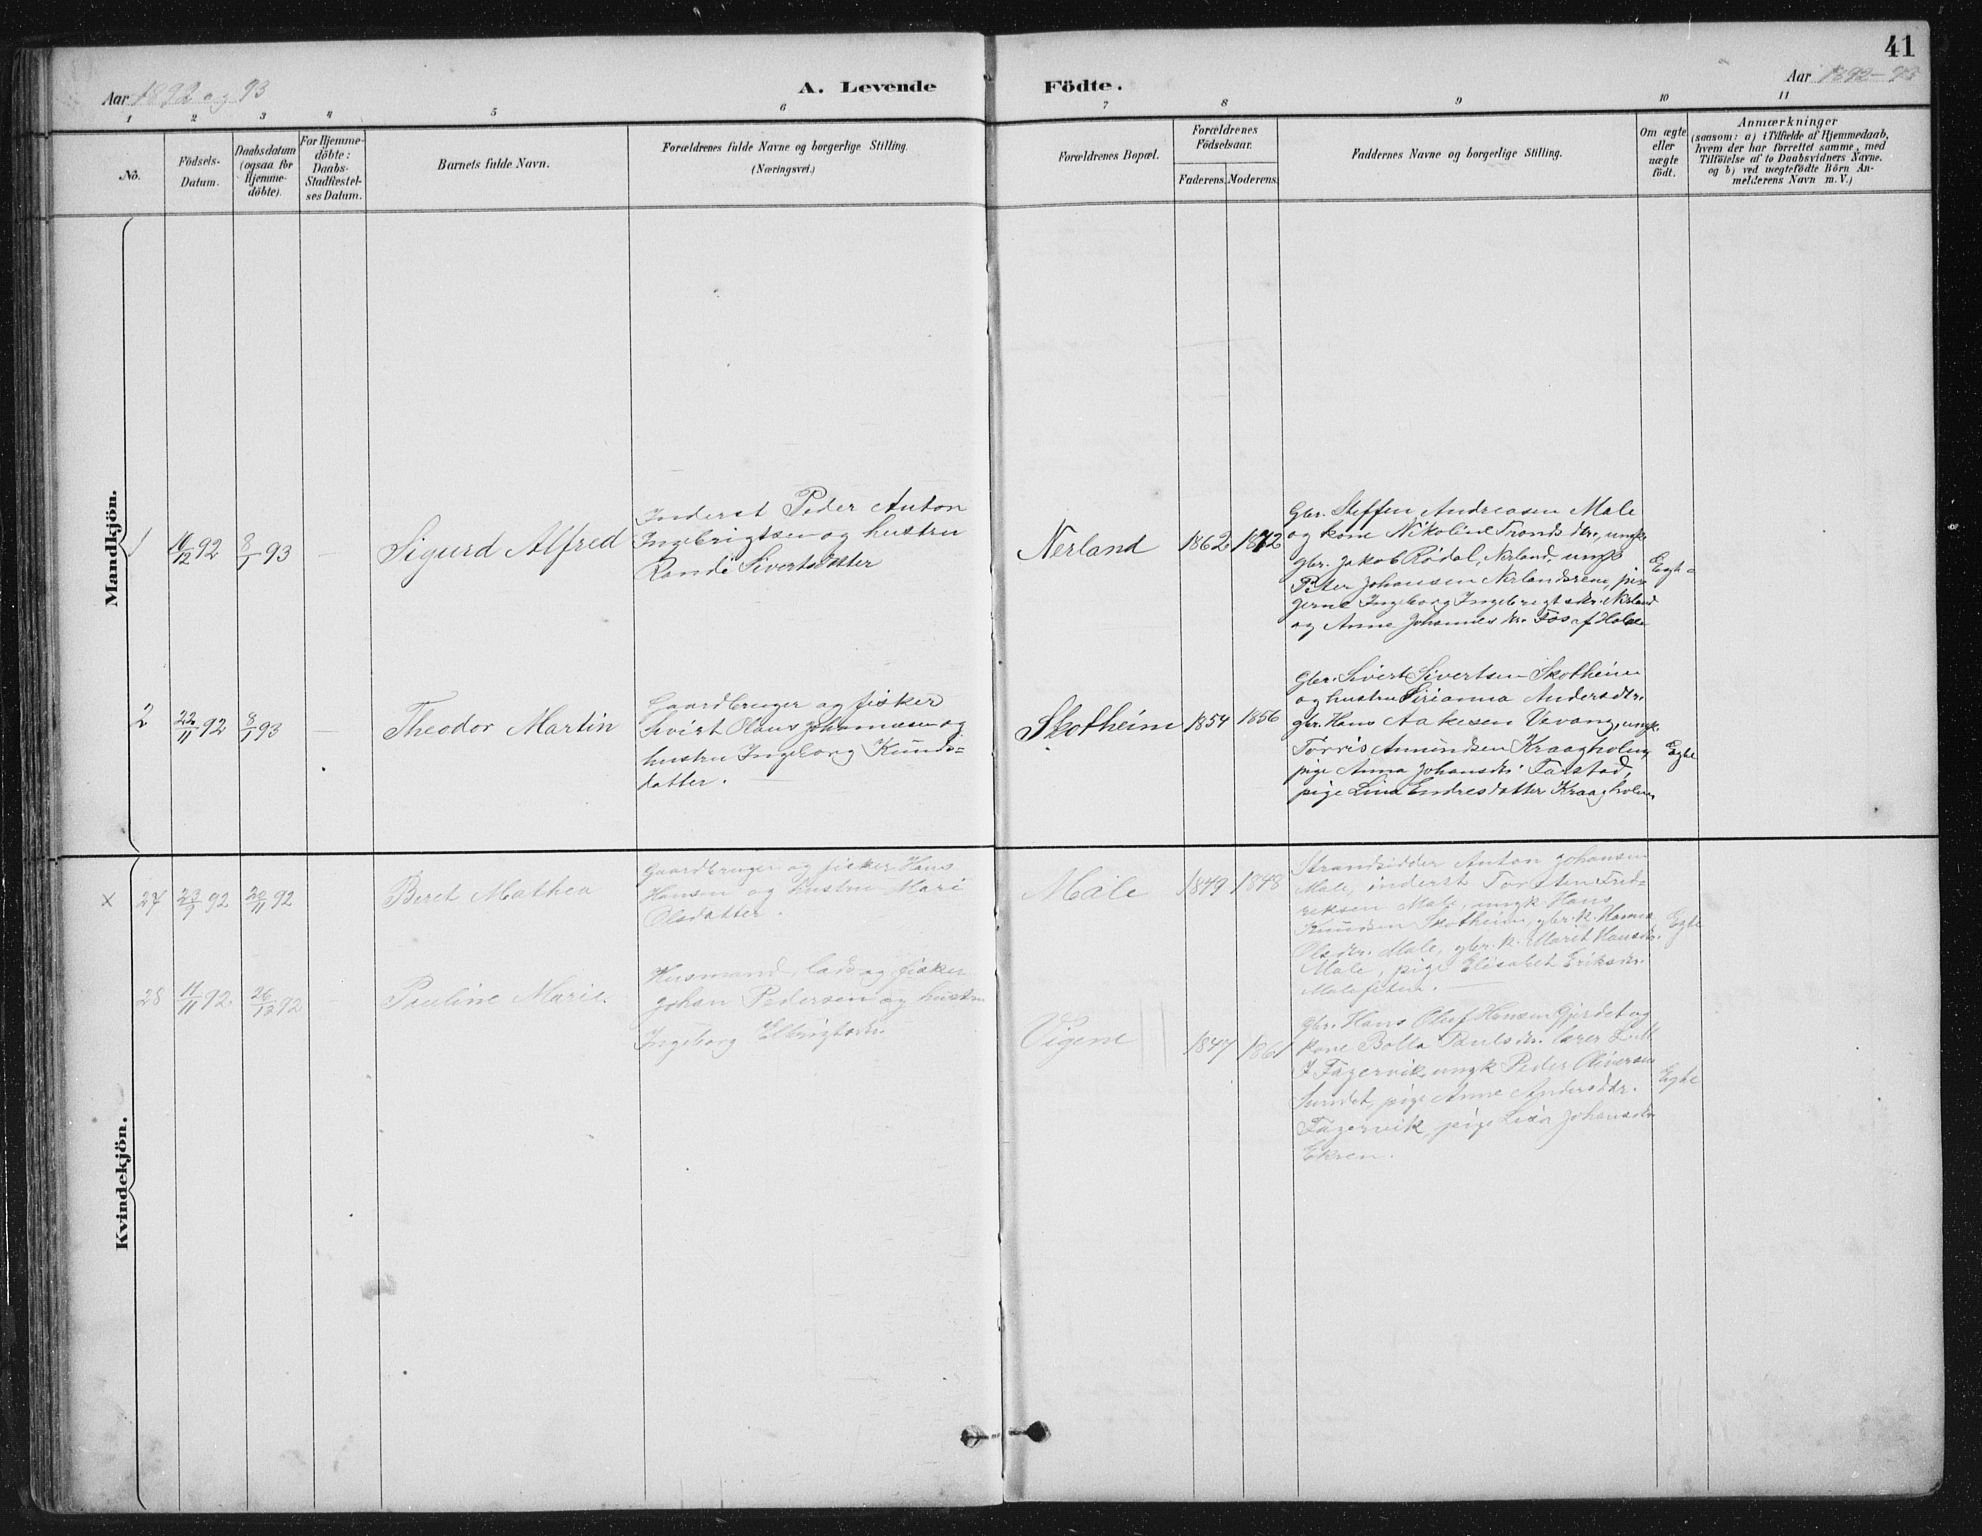 41
Aar 1892 og 93
A. Levende Födte.
Aar 1892-93
1 2 3 4 5 6 7 8 9 10 11
No.
Födsels-
Datum.
Daabsdatum
(ogsaa for
Hjemme-
döbte).
For Hjemme-
döbte:
Daabs-
Stadfæstel-
ses Datum.
Barnets fulde Navn.
Forældrenes fulde Navne og borgerlige Stilling.
(Næringsvei.)
Forældrenes Bopæl.
Forældrenes
Födselsaar.
Faderens. Moderens.
Faddernes Navne og borgerlige Stilling.
Om ægte
eller
uægte
födt.
Anmærkninger
(saasom: a) i Tilfælde af Hjemmedaab,
hvem der har forrettet samme, med
Tilföielse af to Daabsvidners Navne.
og b) ved uægtefödte Börn An-
melderens Navn m. V.)
Mandkjön.
1 16/12 92 8/1 93 — Sigurd Alfred
Inderst Peder Anton
Ingebrigtsen og hustru
Randi Sivertsdatter
Nerland 1862 1872
Gbr. Steffen Andreasen Male
og kone Nikoline Tronds dtr, ungk
gbr. Jakob Rødal, Nerland, ungk
Peter Johansen Nerlandsrem, pi-
gerne Ingeborg Ingebrigtsdtr. Nerland
og Anne Johannesdtr.
Egte
2 22/11 92 8/1 93 — Theodor Martin
Gaardbruger og fisker
Sivert Olaus Johannesen og
hustru Ingeborg Knuds-
datter.
Skotheim 1854 1856
Gbr. Sivert Sivertsen Skotheim
og hustru Sirianna Andersdtr.
gbr. Hans Aakesen Vevang, ungk.
Torris Amundsen Kraagholm,
pige Anna Johansdtr Farstad,
pige Lina Endresdatter Kraagholm.
Egte
Kvindekjön.
x 27 23/9 92 20/11 92 Beret Mathea
Gaardbruger og fisker Hans
Hansen og hustru Mari
Olsdatter.
Male 1849 1848
Strandsidder Anton Johansen
Male, inderst Torsten Fred-
riksen Male, ungk Hans
Knudsen Skotheim, gbr. k. Hanna
Olsdtr. Male, gbr. k. Marit Hansdtr.
Male, pige Elisabet Eriksdtr.
Malefeten.
Egte
28 11/11 92. 26/12 92 Pauline Marie.
Husmand, lods og fisker
Johan Pedersen og hustru
Ingeborg Elbrigtsdtr.
Vigene 1847 1861
Gbr. Hans Oluf Hansen Gjerdet og
kone Bolla Paulsdtr. lærer
Fagervik, ungk Peder Oliversen
Sundet, pige Anne Andersdtr.
Fagervik, pige Lisa Johansdtr
Ekren.
Egte